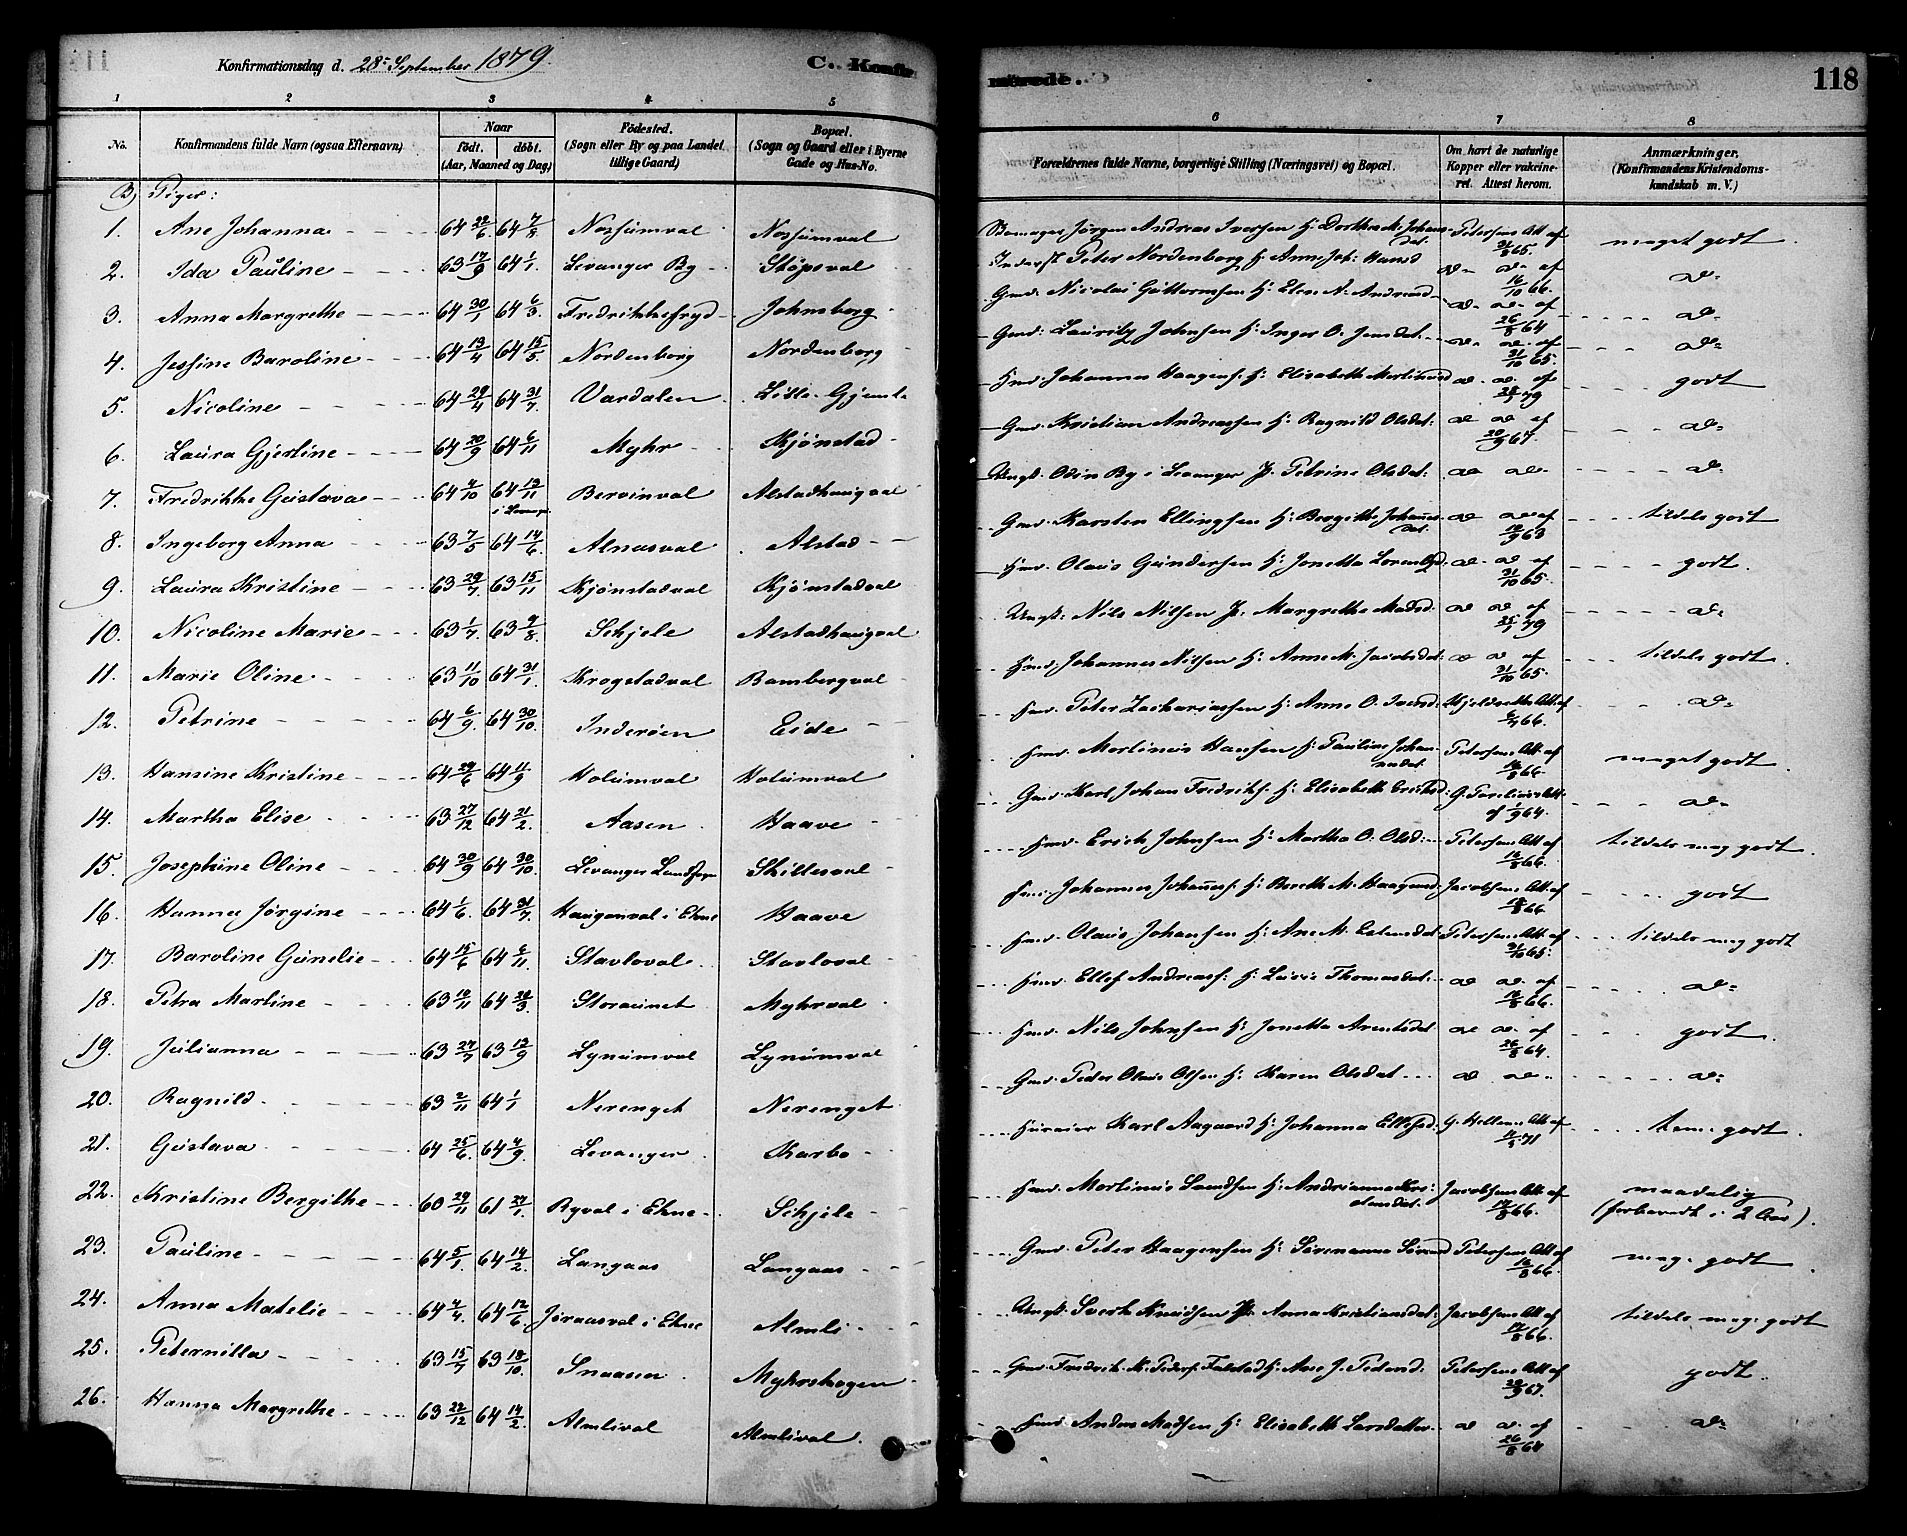 Konfirmationsdag d. 28de September 1879.
C. Konfirmerede.
118
1 2 3 4 5 6 7 8
No. Konfirmandens fulde Navn (ogsaa Efternavn) Naar födt. döbt. (Aar, Maaned og Dag) Födested. (Sogn eller By og paa Landet tillige Gaard) Bopæl. (Sogn og Gaard eller i Byerne Gade og Hus-No. Forældrenes fulde Navne, borgerlige Stilling (Næringsvei) og Bopæl. Om havt de naturlige Kopper eller vakcineret. Attest herom. Anmærkninger. (Konfirmandens Kristendomskundskab m. V.)
B) Piger:
1. Ane Johanna 64 22/6 64 7/8 Nossumval Nossumval Jørgen Andreas Iversen H: Dorthea M. Johansdat. Petersens Att af 31/8 65. meget godt.
2. Ida Pauline 63 17/9 64 1/1 Levanger By Støpsval Inderst Peter Nordenborg H: Anne Joh: Hansd ad ad af 16/10 66. ad
3. Anna Margrethe 64 30/1 64 6/3 Fredrikkefryd Johnsborg Gmd: Nicolai Guttormsen H: Elen N. Andreasd ad ad af 26/8 64 ad
4. Jessine Baroline 64 13/4 64 15/5 Nordenborg Nordenborg Gmd: Lauritz Johnsen H: Inger O. Jensdat. ad ad af 31/10 65. ad
5. Nicoline 64 29/4 64 31/7 Vardalen Lille Gjemle Hmd. Johannes Haagens. H: Elisabeth Mortinusd ad ad af 79 godt
6. Laura Gjertine 64 20/9 64 6/11 Myhr Kjønstad Gmd. Kristian Andreassen H: Ragnild Olsdat: ad ad af 20/9 67. ad
7. Fredrikke Gustava 64 4/10 64 13/11 i Levanger Bervinval Alstadhaugval Ungk. Odin By i Levanger P: Petrine Olsdat: ad ad ad
8. Ingeborg Anna 63 7/5 64 14/6 Alnasval Alstad Gmd. Karsten Ellingsen H: Bergithe Johannesdat. ad ad af 12/9 63 tildels godt
9. Laura Kristine 63 29/7 63 15/11 Kjønstadval Kjønstadval Hmd. Olaus Gundersen H: Jonetta Lorentsd. ad ad af 31/10 65. godt.
10. Nicoline Marie 63 1/7 63 9/8 Schjele Alstadhaugval Ungk: Nils Nilsen P: Margrethe Madsd. ad ad af 25/1 79 ad
11. Marie Oline 63 11/10 64 31/1 Krogstadval Bambergval Hmd. Johannes Nilsen H: Anne M. Jacobsdat: ad ad af 31/10 65. tildels godt.
12. Petrine 64 6/9 64 30/10 Inderøen Eide Hmd. Peter Zachariassen H: Anne O. Iversd. Att. af 66. ad
13. Hansine Kristine 64 29/6 64 11/9 Holumval Holumval Hmd. Mortinus Hansen H: Pauline Johannesdat. Petersens Att. af 16/8 66. meget godt.
14. Martha Elise 63 27/12 64 21/2 Aasen Haave Gmd. Karl Johan Fredriks. H: Elisabeth Erichsd: Att. af 1/9 64. ad
15. Josephine Oline 64 30/9 64 30/10. Levanger Landsogn Skillesval Hmd. Erich Johnsen H: Martha O. Olsd: Petersens Att af 16/8 66. tildels meg godt.
16. Hanna Jørgine 64 1/6. 64 31/7 Hauganval i Ekne Haave Hmd. Johannes Johanness. H: Bereth M. Haagensd. Jacobsens Att af 18/8 66. godt
17. Baroline Gunelie 64 15/6 64 6/11 Stavloval Stavloval Hmd. Olaus Johansen H: Ane M. Estensdat. Petersens Att af 31/10 65. tildels meg godt
18. Petra Martine 63 10/11 64 28/3. Storaunet Myhrval Hmd. Ellef Andreass: H: Lucie Thomasdat: ad ad af 16/8 66. ad
19. Julianna 63 27/7 63 13/9 Lynumval Lynumval Hmd. Nils Johnsen H: Jonetta Arentsdat. ad ad af 26/8 64. godt.
20. Ragnild 63 2/11 64 1/1 Nerenget Nerenget Gmd. Peder Olaus Olsen H: Karen Olsdat ad ad ad
21. Gustava 64 25/6 64 4/9. Levanger Karbo Karl Aagaard H: Johanna Ellefsd. G. Att af 71 tem: godt.
22. Kristine Bergithe 60 29/11 61 27/1. Byval i Ekne Schjele Hmd. Mortinus H: Andrianna Jacobsens Att af 18/8 66. maadelig (forberedt i 2 Aar).
23. Pauline 64 5/1. 64 14/2. Langaas Langaas Gmd. Peter Haagensen H: Sørenanna Sørensd Petersens Att af 16/8 66. meg. godt
24. Anna Matelie 64 4/4. 64 12/6 Joraasval i Ekne Almli Ungk. Sverk Knudsen P: Anna Kristiansdat: Jacobsens Att af 17/8 66. tildels meg: godt
25. Peternilla 63 15/7 63 18/10. Snaasen Myhrshagen Gmd. Fredrik M. Peders. Falstad H: Ane J. Pedersd. Petersens Att af 20/9 67. godt.
26. Hanna Margrethe 63 22/12 64 14/2. Almlival Almlival. Hmd. Anders Madsen H: Elisabeth Larsdatter ad ad af 26/8 64 ad